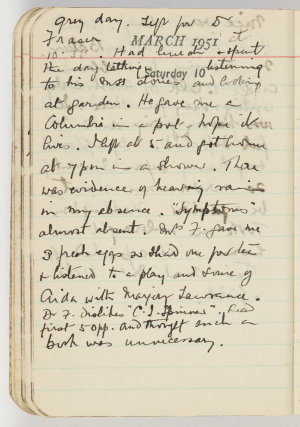 Grey day. Left for Dr
Fraser at
MARCH 1951
10. Had lunch & spent
the day talking listening
Saturday 10
to his and looking
at garden. He gave me a
Columbine in a pot - hope it
lives. I left at 5 and got home
at 7pm in a shower. There
was evidence of heavy rain
in my absence. "Symptoms"
almost absent. Mrs F. gave me
3 fresh eggs so I had one for tea
& listened to a play and some of
Aida with Marjory Lawrence.
Dr F. dislikes "C. J. " Read
first 5 pp. and thought such a
book was unnecessary.